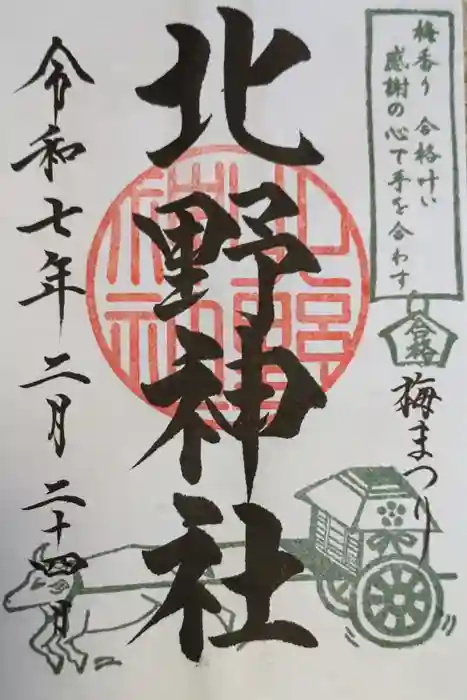 梅香り 合格叶い
感謝の心で手を合わす
合格
梅まつり
北野神社
北野神社
令和七年二月二十四日